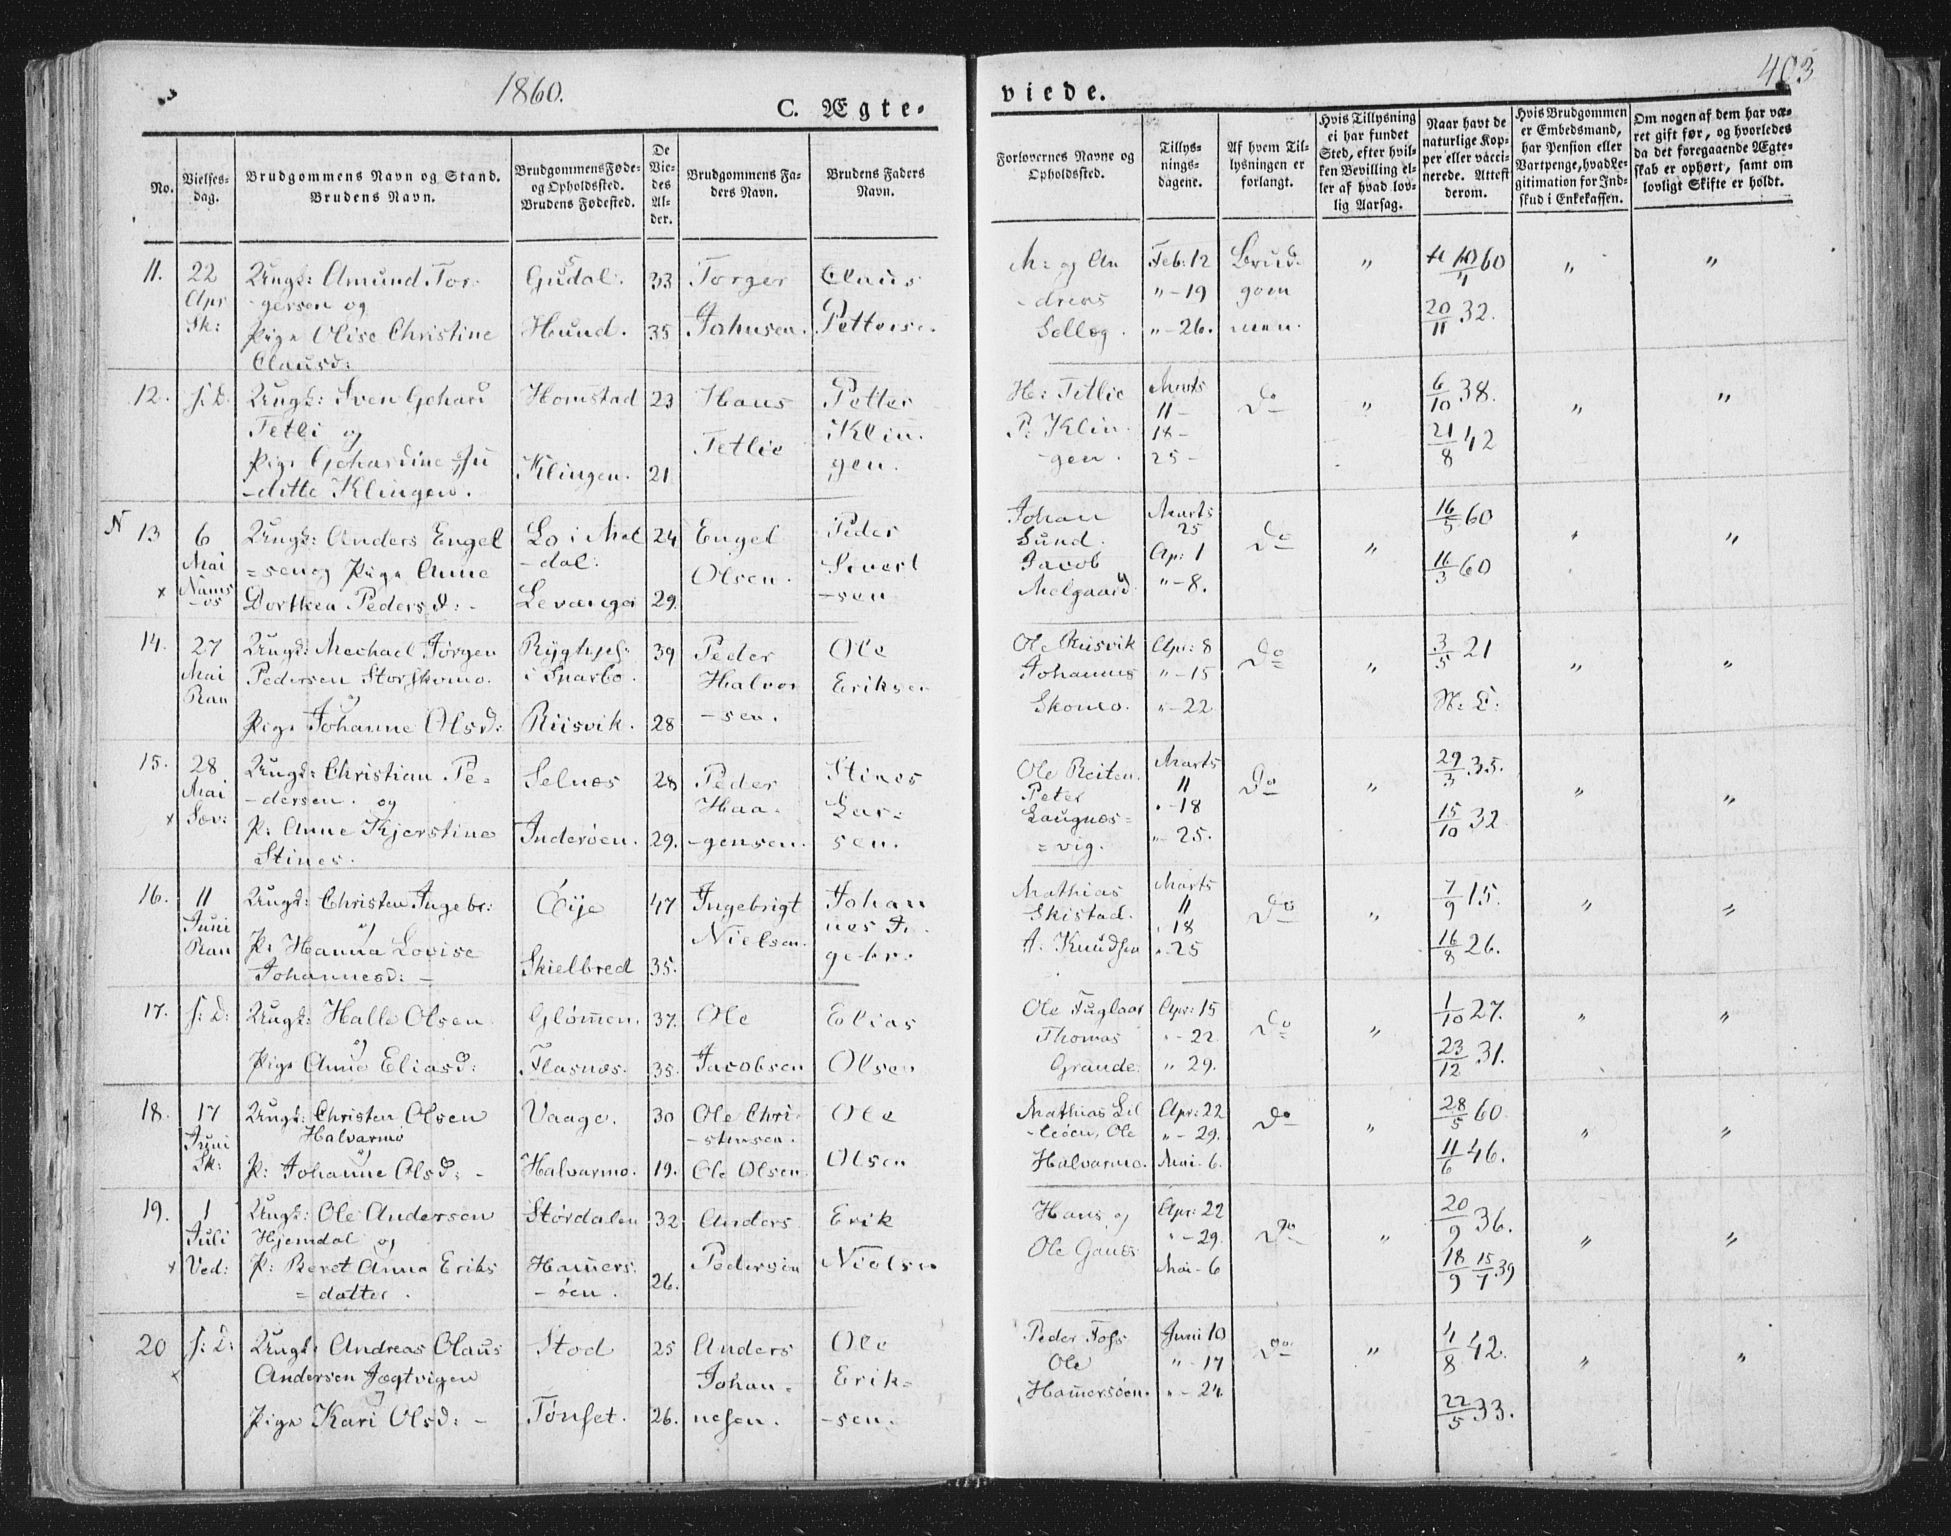 1860.
403
C. Ægte-
viede.
No.
Vielses-
dag.
Brudgommens Navn og Stand.
Brudens Navn.
Brudgommens Føde-
og Opholdssted.
Brudens Fødested.
De
Vie-
des
Al-
der.
Brudgommens Fa-
ders Navn.
Brudens Faders
Navn.
Forlovernes Navne og
Opholdssted.
Tillys-
nings-
dagene.
Af hvem Til-
lysningen er
forlangt.
Hvis Tillysning
ei har fundet
Sted, efter hvil-
ken Bevilling el-
ler af hvad lov-
lig Aarsag.
Naar havt de
naturlige Kop-
per eller vacci-
nerede. Attest
derom.
Hvis Brudgommen
er Embedsmand,
har Pension eller
Vartpenge, hvad Le-
gitimation for Ind-
skud i Enkekassen.
Om nogen af dem har væ-
ret gift før, og hvorledes
da det foregaaende Ægte-
skab er ophørt, samt om
lovligt Skifte er holdt.
11. 22 Apr Sk: Ungk: Amund Tor-
gersen og
Pige Olise Christine
Clausd:
Gusdal. 33 Torger Johnsen. Claus Petterse.
Hund. 35
M: og An
-dreas
Sellæg. Feb: 12 " - 19 " - 26. Brud-
gom
men. " 20/11 32. " "
12. s. D. Ungk: Sven Gohard
Tetli og
Pige Gohardine Ju
-ditte Klingen.
Homstad 23 Hans Tetlie Petter Klin-
gen.
Klingen. 21
H: Tetlie
P: Klin-
gen. Marts 11 - 18 - 25 - Do " 6/10 38. 21/8 42 " "
N 13 6 Mai Nams
-os x Ungk: Anders Engel
=sen og Pige Anne
Dorthea Pedersd: -
Lo i Mel
-dal: 24 Engel Olsen. Peder Sivert
-sen
Levanger 29.
Johan
Sund.
Jacob
Melgaard Marts 25 Ap: 1 " - 8. Do " 16/5 60 16/3 60 " "
14. 27 Mai Ran Ungk: Mechael Jørgen
Pedersen Storskomo.
og
Pige Johanne Olsd:
Ryghjel-
i Snarbo. 39 Peder Halvor
-sen. Ole Eriksen
Riisvik. 28
Ole Riisvik
Johannes
Skomo. Apr: 8 " - 15 " - 22 Do " 3/5 21 N: E: " "
15. 28 Mai Sæv: x Ungk: Christian Pe-
-dersen. og
P: Anne Kjerstine
Stines.
Selnæs 28 Peder Haa-
-gensen. Stines Lar-
sen.
Inderøen. 29.
Ole Reiten.
Peter
Laugnæs=
=vig. Marts 11 " - 18 " - 25. Do " 29/3 35. 15/10 32 " "
16. 11 Juni Ran Ungk: Christen Ingebr:
og
P: Hanna Lovise
Johannesd: -
Øije 47 Ingebrigt Nielsen. Johan
nes In-
gebr:
Skielbred 35.
Mathias
Skistad.
A. Knudsen Marts 11 " 18 " 25 Do " 7/9 15. 16/8 26. " "
17. s: D: Ungk: Halle Olsen
og
Pige Anne Eliasd:
Glømen. 37. Ole Jacobsen Elias Olsen
Flasnæs. 35.
Ole Fuglaar
Thomas
Grande. Apr: 15 " - 22 " 29. Do " 1/10 27. 23/12 31. " "
18. 17 Juni Sk: Ungk: Christen Olsen
Halvarmo
og
P: Johanne Olsd: -
Vaage. 30 Ole Chri-
-stensen. Ole Olsen
Halvarmo. 19. Ole Olsen
Mathias Lil
-leøen, Ole
Halvarmo. Apr: 22 " - 29. Mai - 6. Do " 28/5 60 11/6 46. " "
19. 1 Juli Ved: x Ungk: Ole Andersen
Hjemdal og
P: Beret Anna Eriks
=datter.
Størdalen 32 Anders Pedersen Erik Nielsen
Hamers-
-øen. 26.
Hans og
Ole Gauss Apr: 22 " - 29. Mai - 6 Do " 20/9 36. 18/9 15/7 39 " "
20 s: D: x Ungk: Andreas Olaus
Andersen Jægtvigen
og
Pige Kari Olsd: -
Stod 25 Anders Johan-
nesen. Ole Erik-
-sen.
Tønset. 26.
Peder Foss
Ole
Hamersøen. Juni 10 " - 17 " - 24 Do " 4/8 42. 22/5 33. " "